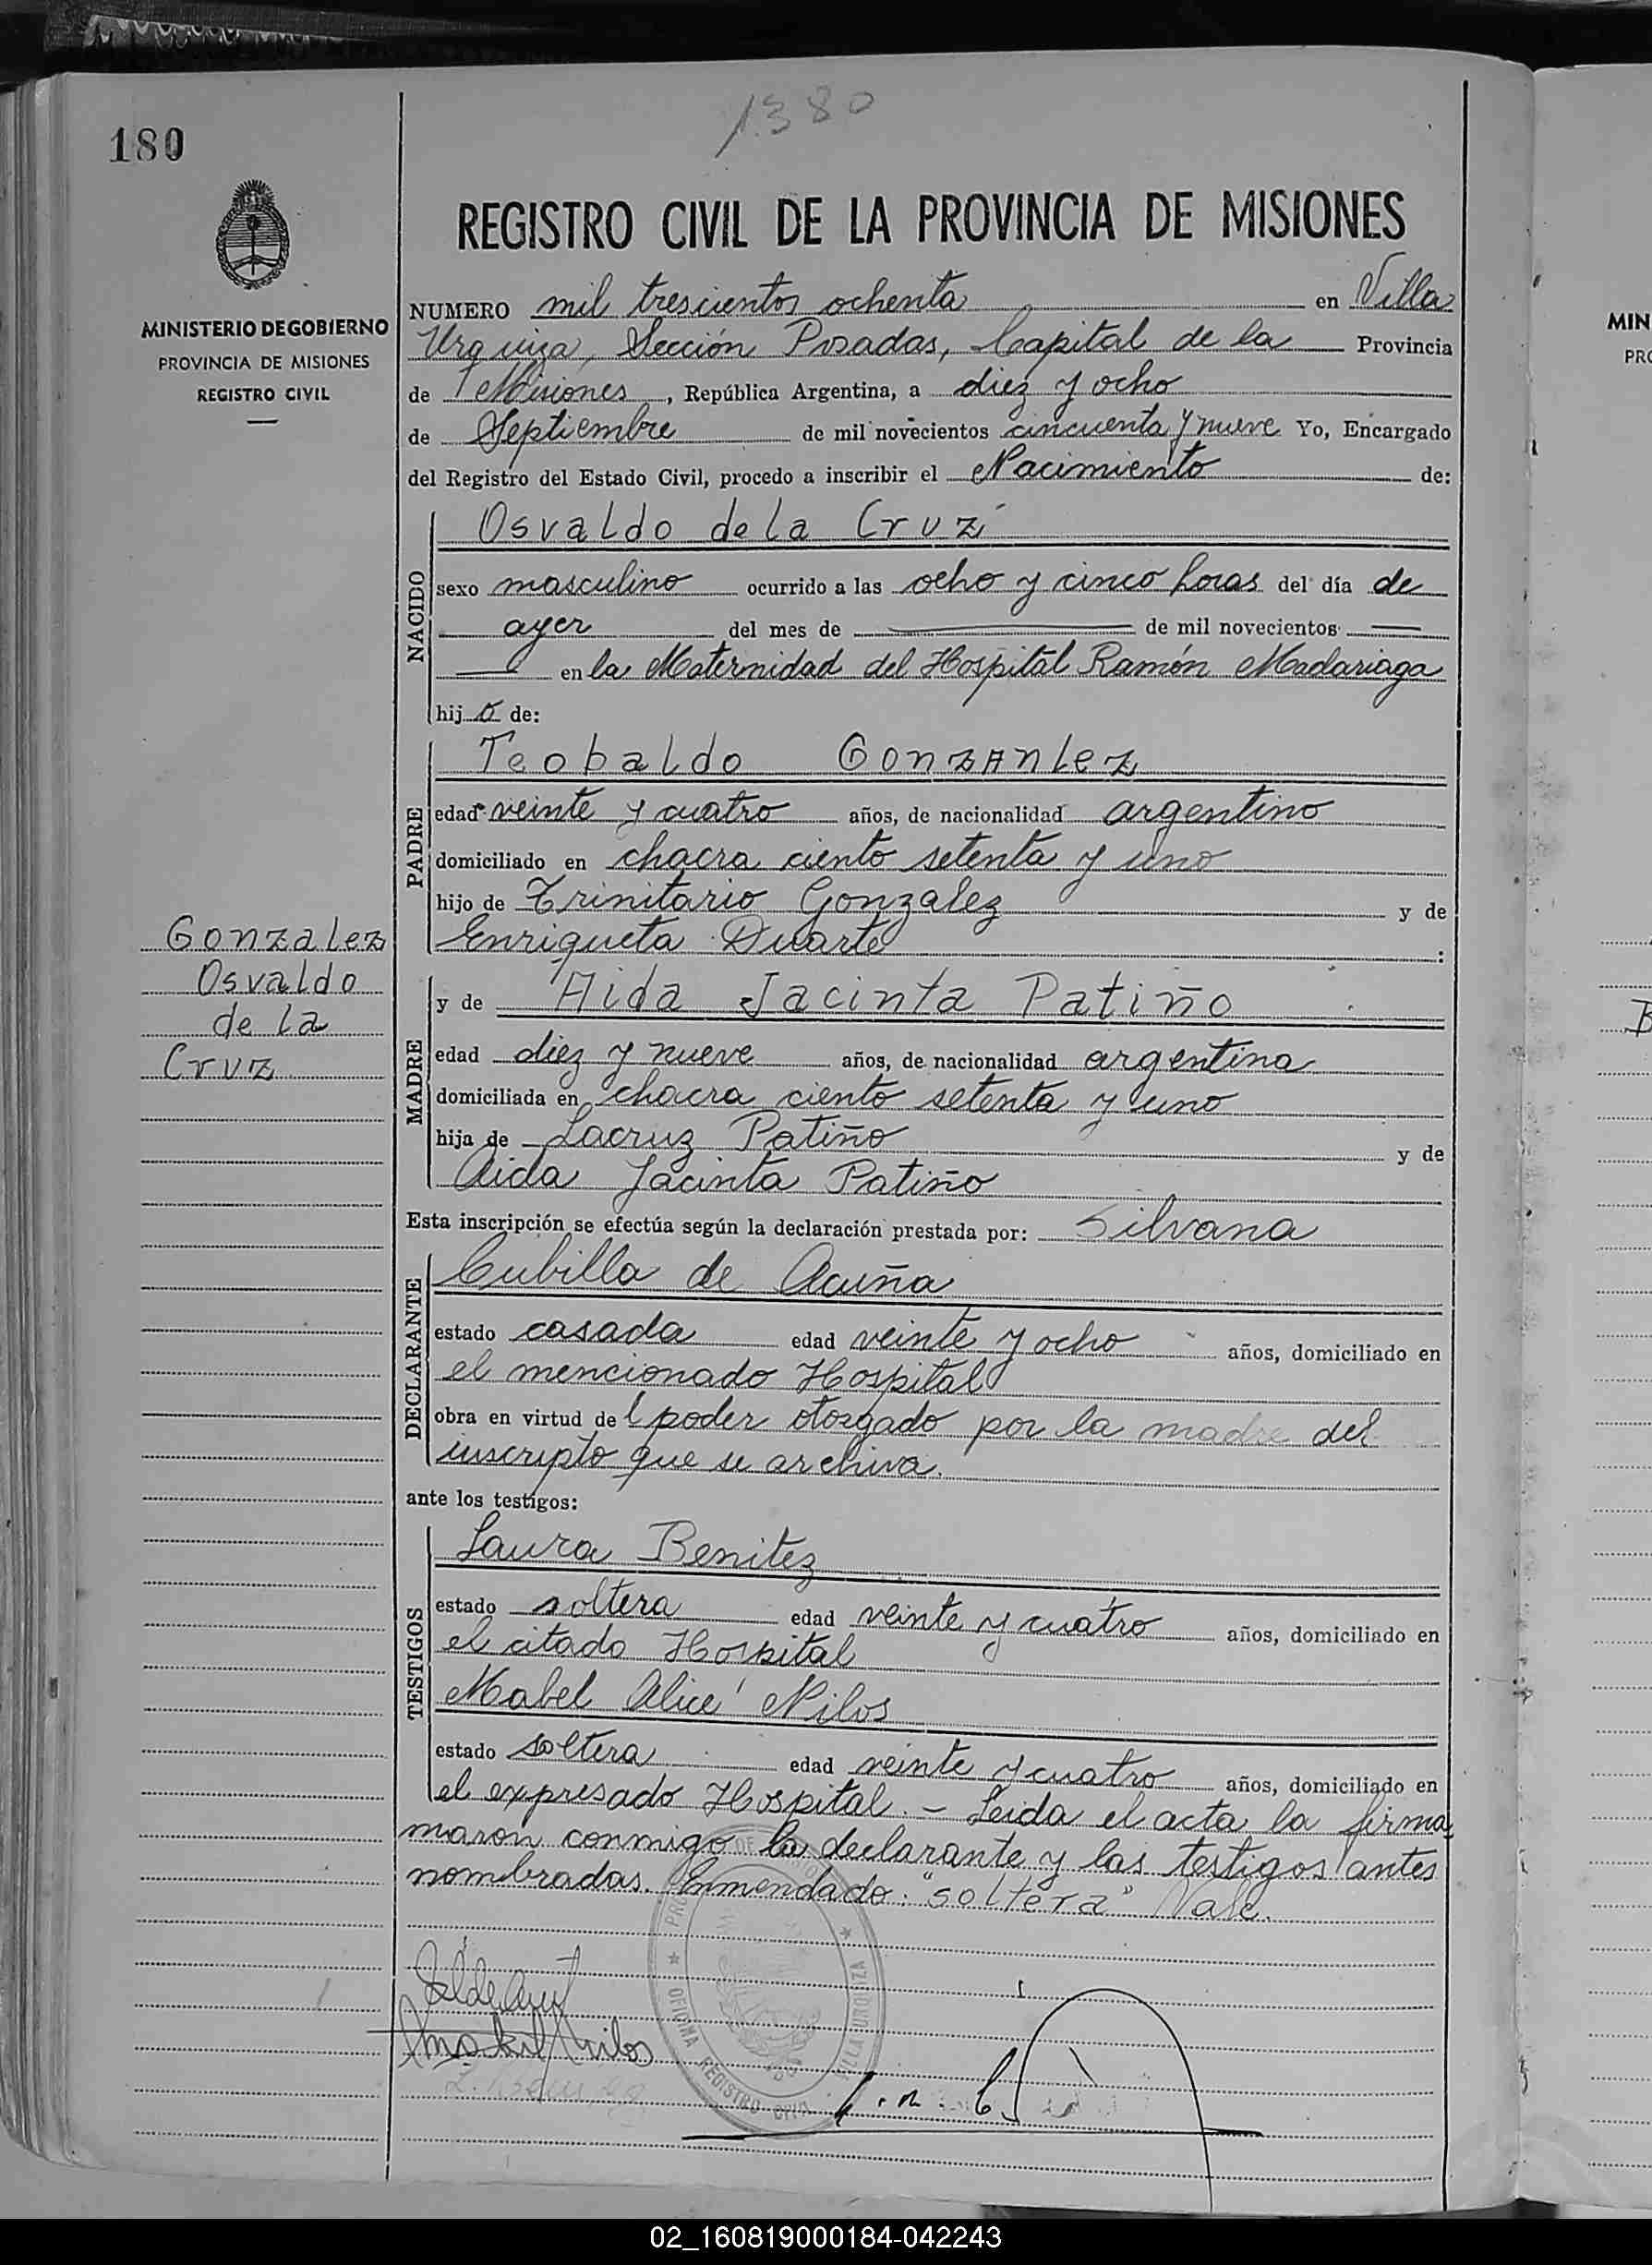 1380
180
REGISTRO CIVIL DE LA PROVINCIA DE MISIONES
MINISTERIO DE GOBIERNO
PROVINCIA DE MISIONES
REGISTRO CIVIL
NUMERO mil trescientos ochenta en Villa
Urquiza, Sección Posadas, Capital de la Provincia
de Misiones, República Argentina, a diez y ocho
de Septiembre de mil novecientos cincuenta y nueve Yo, Encargado
del Registro del Estado Civil, procedo a inscribir el Nacimiento de:
NACIDO
Osvaldo de la Cruz
sexo masculino ocurrido a las ocho y cinco horas del día de
ayer del mes de — de mil novecientos —
— en la Maternidad del Hospital Ramón Madariaga
hijo de:
PADRE
Teobaldo GonzAnLez
edad veinte y cuatro años, de nacionalidad argentino
domiciliado en chacra ciento setenta y uno
hijo de Trinitario Gonzalez y de
Enriqueta Duarte :
Gonzalez
Osvaldo
de la
Cruz
MADRE
y de Aida Jacinta Patiño
edad diez y nueve años, de nacionalidad argentina
domiciliada en chacra ciento setenta y uno
hija de Lacruz Patiño y de
Aida Jacinta Patiño
Esta inscripción se efectúa según la declaración prestada por: Silvana
DECLARANTE
Cubilla de Acuña
estado casada edad veinte y ocho años, domiciliado en
el mencionado Hospital
obra en virtud del poder otorgado por la madre del
inscripto que se archiva.
ante los testigos:
TESTIGOS
Laura Benitez
estado soltera edad veinte y cuatro años, domiciliado en
el citado Hospital
Mabel Alice Nilos
estado soltera edad veinte y cuatro años, domiciliado en
el expresado Hospital. - Leida el acta la firma
maron conmigo la declarante y las testigos antes
nombradas. Enmendado: "soltera" Vale.
OFICINA REGISTRO CIVIL VILLA URQUIZA
MIN
PRO
02_160819000184-042243